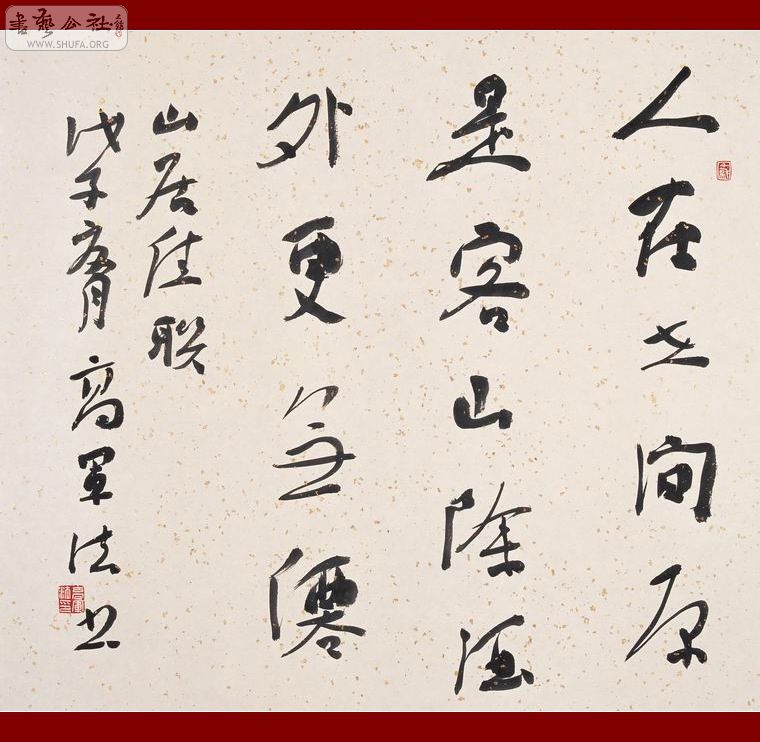 書藝公社
WWW.SHUFA.ORG
人在世间原
是客山除酒
外更無僊
山居佳联
戊子月高军法书